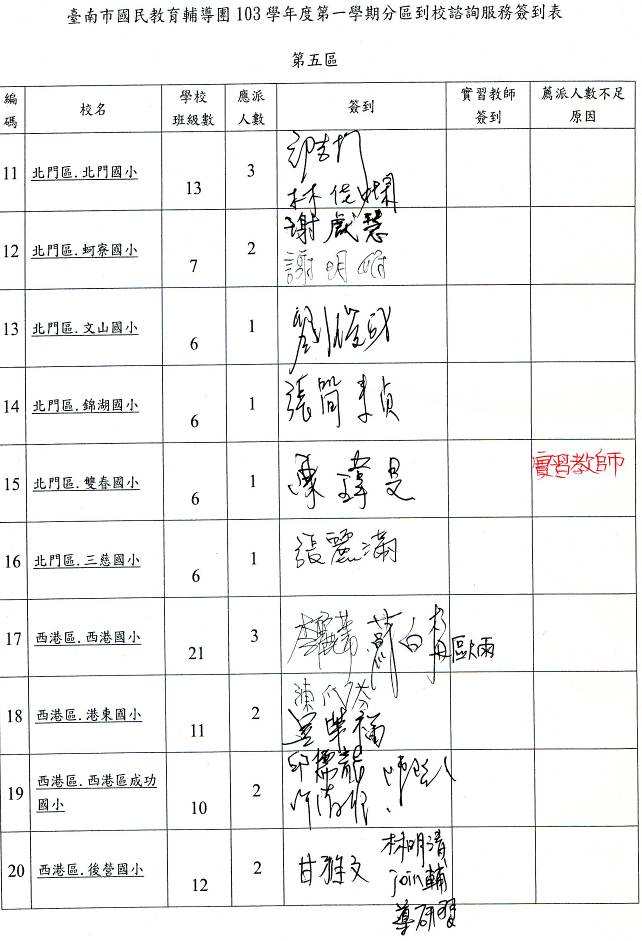 臺南市國民教育輔導團 103 學年度第一學期分區到校諮詢服務簽到表
第五區
編碼 校名 學校班級數 應派人數 簽到 實習教師簽到 薦派人數不足原因
11 北門區.北門國小 13 3
12 北門區.蚵寮國小 7 2 謝獻慧
謝明
13 北門區.文山國小 6 1 劉
14 北門區.錦湖國小 6 1 張簡 貞
15 北門區.雙春國小 6 1 陳 旻 實習教師
16 北門區.三慈國小 6 1 張麗滿
17 西港區.西港國小 21 3
18 西港區.港東國小 11 2
19 西港區.西港區成功國小 10 2 邱儒龍
20 西港區.後營國小 12 2 甘雅文 林明清
join輔
導研習